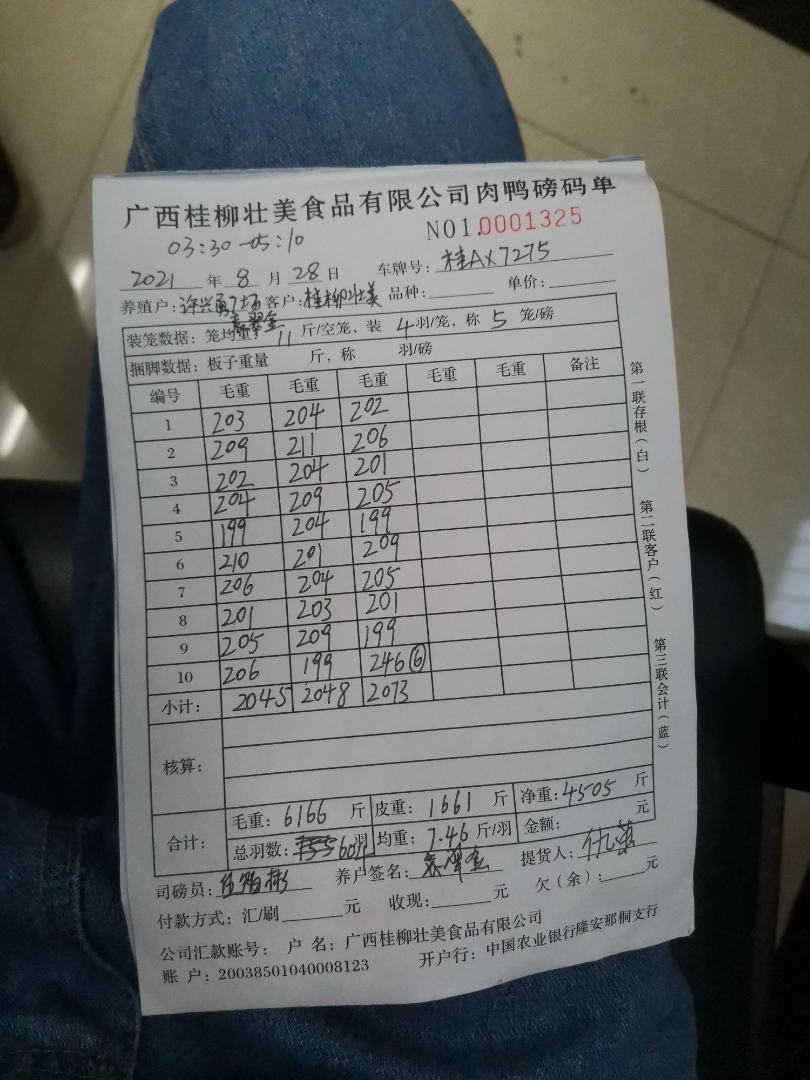 广西桂柳壮美食品有限公司肉鸭磅码单
03:30-05:10 NO1.0001325
2021年8月28日 车牌号:桂AX7275
养殖户:许兴勇7场 客户:桂柳壮美 品种: 单价:
装笼数据:笼均重:11斤/空笼,装4羽/笼,称5笼/磅
捆脚数据:板子重量 斤,称 羽/磅
编号 毛重 毛重 毛重 毛重 毛重 备注
1 203 204 202
2 209 211 206
3 202 204 201
4 204 209 205
5 199 204 199
6 210 201 209
7 206 204 205
8 201 203 201
9 205 209 199
10 206 199 246⑥
小计: 2045 2048 2073
核算:
合计: 毛重:6166斤 皮重:1661斤 净重:4505斤
总羽数: 均重:7.46斤/羽 金额: 元
司磅员: 养户签名: 提货人:
付款方式:汇/刷 元 收现: 元 欠(余): 元
公司汇款账号: 户 名:广西桂柳壮美食品有限公司
账 户:20038501040008123 开户行:中国农业银行隆安那桐支行
第一联存根(白)
第二联客户(红)
第三联会计(蓝)